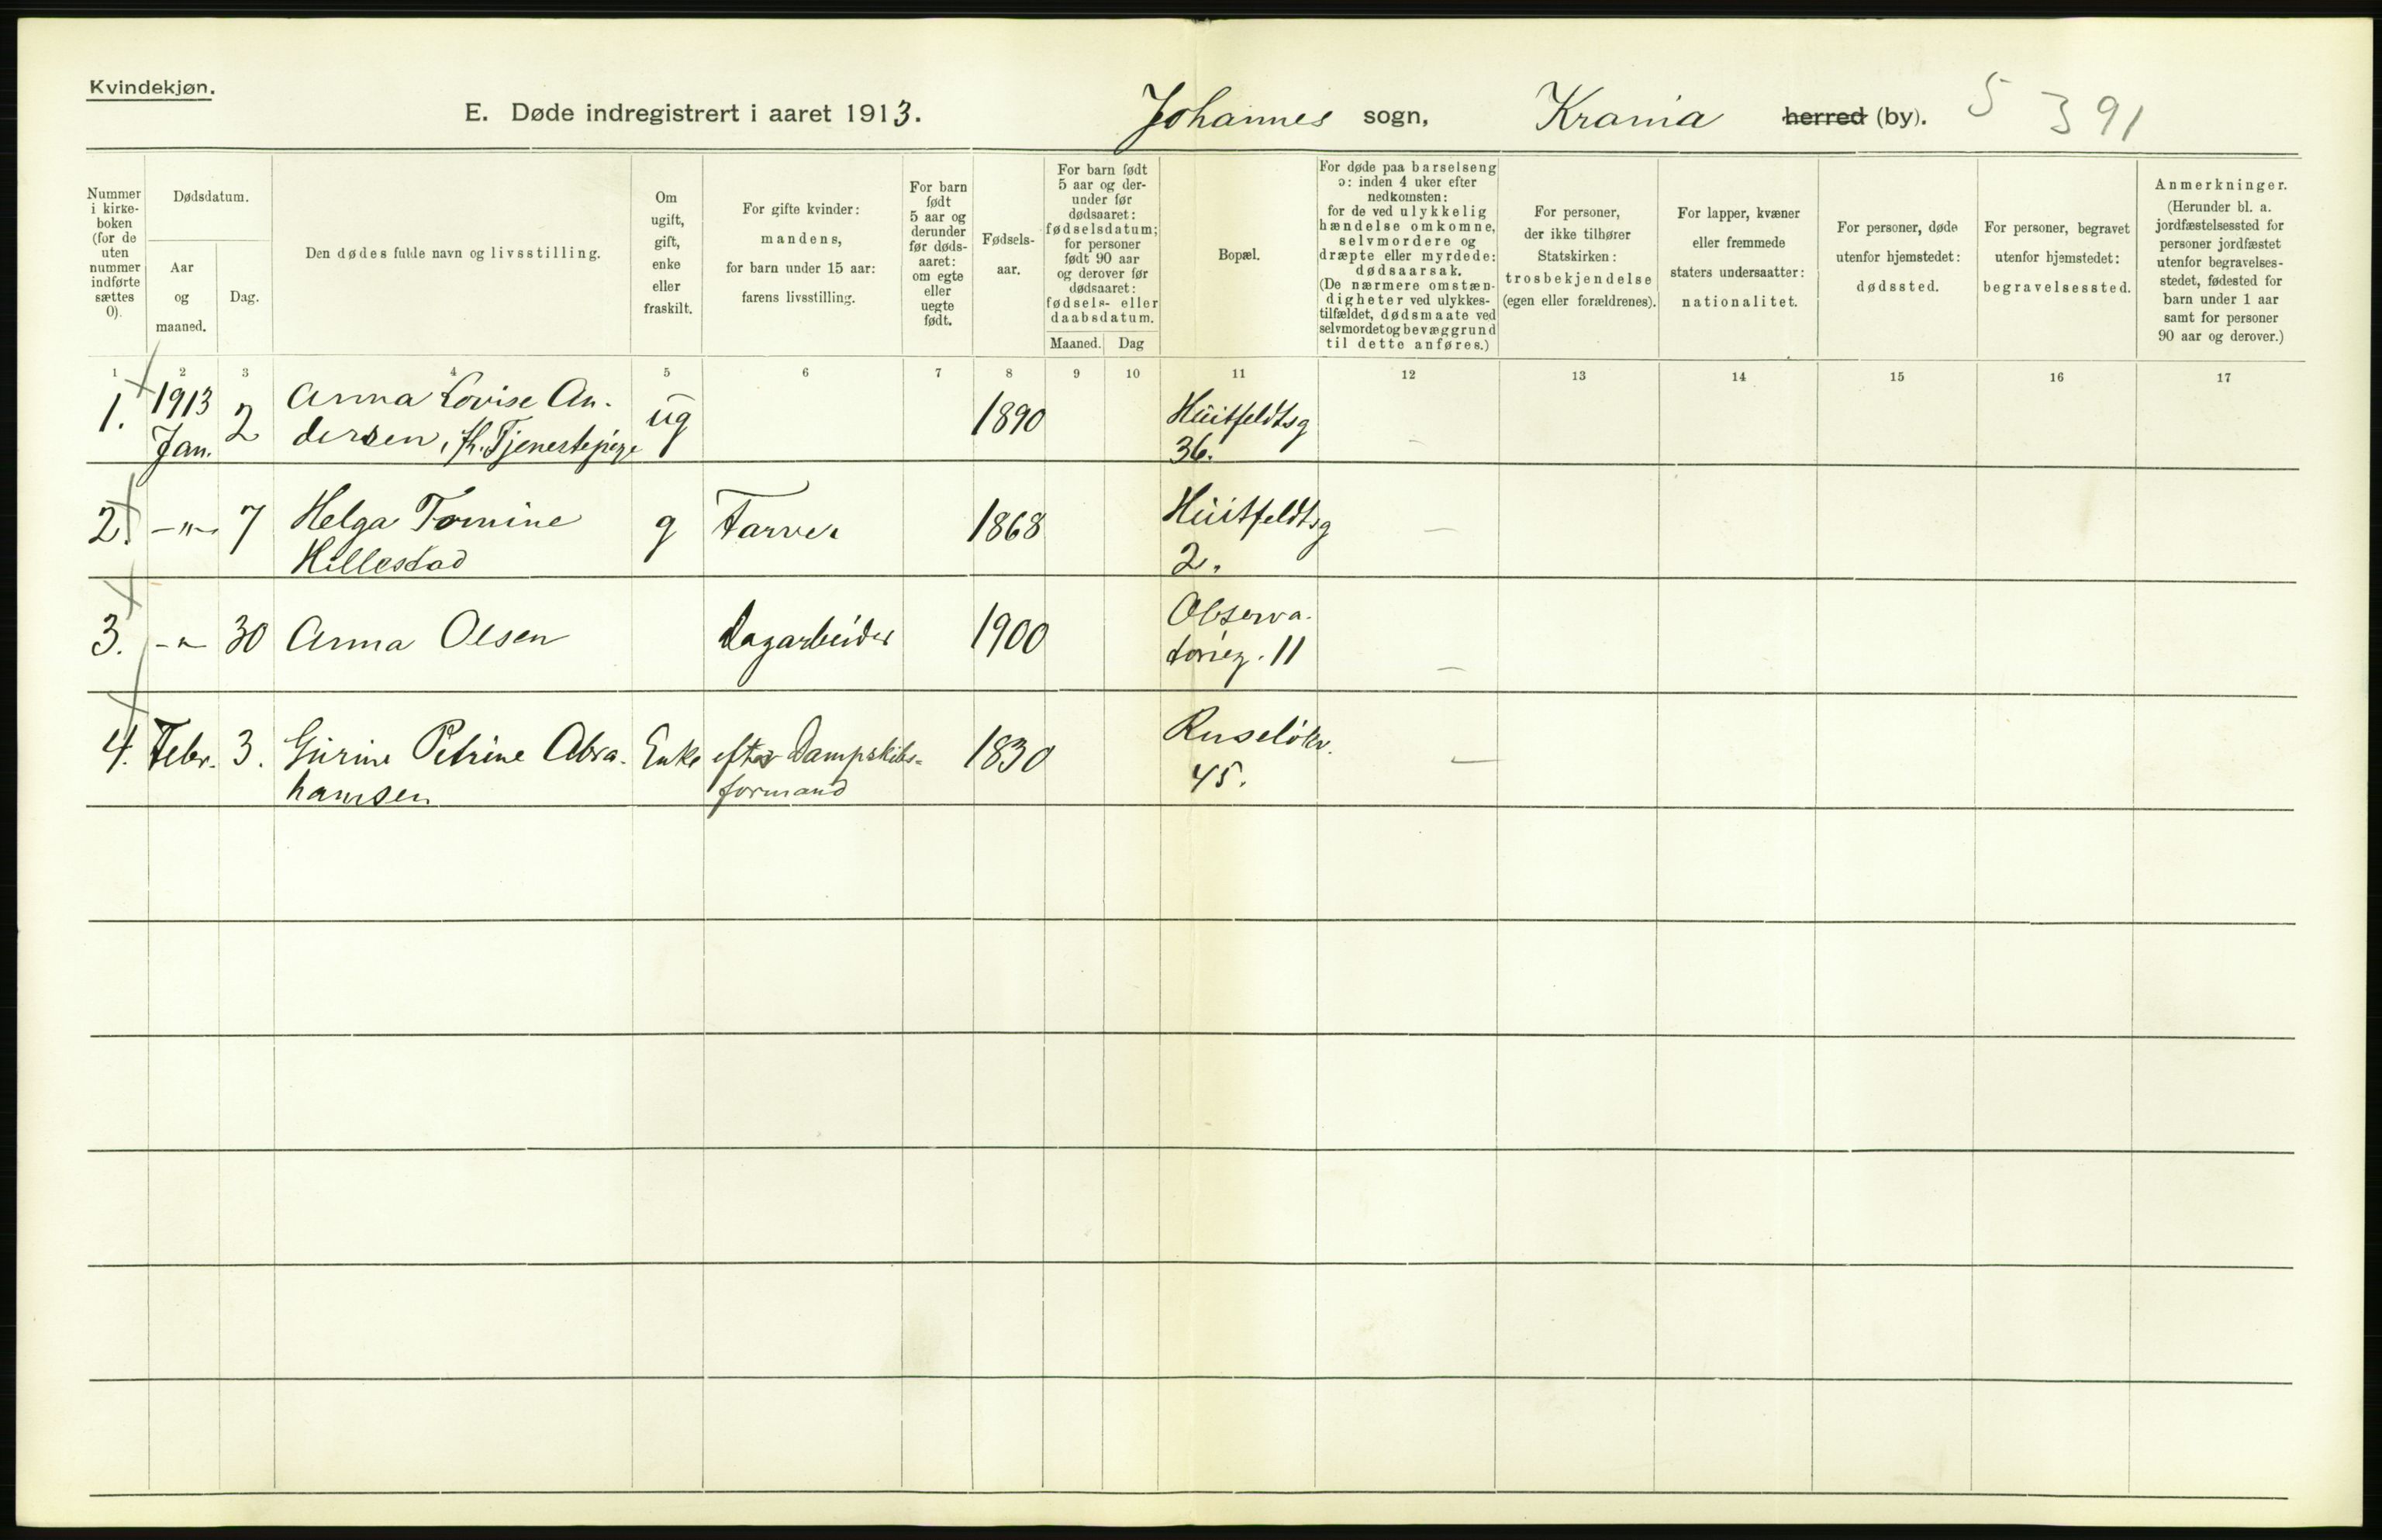 Kvindekjøn.
E. Døde indregistrert i aaret 1913. Johannes sogn, Krania herred (by). 5 391
Nummer
i kirke-
boken
(for de
uten
nummer
indførte
sættes
0).
Dødsdatum.
Aar
og
maaned.
Dag.
Den dødes fulde navn og livsstilling.
Om
ugift,
gift,
enke
eller
fraskilt.
For gifte kvinder:
mandens,
for barn under 15 aar:
farens livsstilling.
For barn
født
5 aar og
derunder
før døds-
aaret:
om egte
eller
uegte
født.
Fødsels-
aar.
For barn født
5 aar og der-
under før
dødsaaret:
fødselsdatum;
for personer
født 90 aar
og derover før
dødsaaret:
fødsels- eller
daabsdatum.
Maaned. Dag
Bopæl.
For døde paa barselseng
ɔ: inden 4 uker efter
nedkomsten:
for de ved ulykkelig
hændelse omkomne,
selvmordere og
dræpte eller myrdede:
dødsaarsak.
(De nærmere omstæn-
digheter ved ulykkes-
tilfældet, dødsmaate ved
selvmordet og bevæggrund
til dette anføres.)
For personer,
der ikke tilhører
Statskirken:
trosbekjendelse
(egen eller forældrenes).
For lapper, kvæner
eller fremmede
staters undersaatter:
nationalitet.
For personer, døde
utenfor hjemstedet:
dødssted.
For personer, begravet
utenfor hjemstedet:
begravelsessted.
Anmerkninger.
(Herunder bl. a.
jordfæstelsessted for
personer jordfæstet
utenfor begravelses-
stedet, fødested for
barn under 1 aar
samt for personer
90 aar og derover.)
1 2 3 4 5 6 7 8 9 10 11 12 13 14 15 16 17
1. 1913 2 Anna Lovise An- ug 1890 Huitfeldtsg –
Jan. dersen, fh. Tjenestepige 36.
2. -"- 7 Helga Tomine g Farver 1868 Huitfeldtsg –
Hillestad 2.
3. -"- 30 Anna Olsen Dagarbeider 1900 Observa- –
torieg. 11
4. Febr. 3. Gurine Petrine Abra- Enke efter Dampskibs- 1830 Ruseløkv. –
hamsen formand 45.